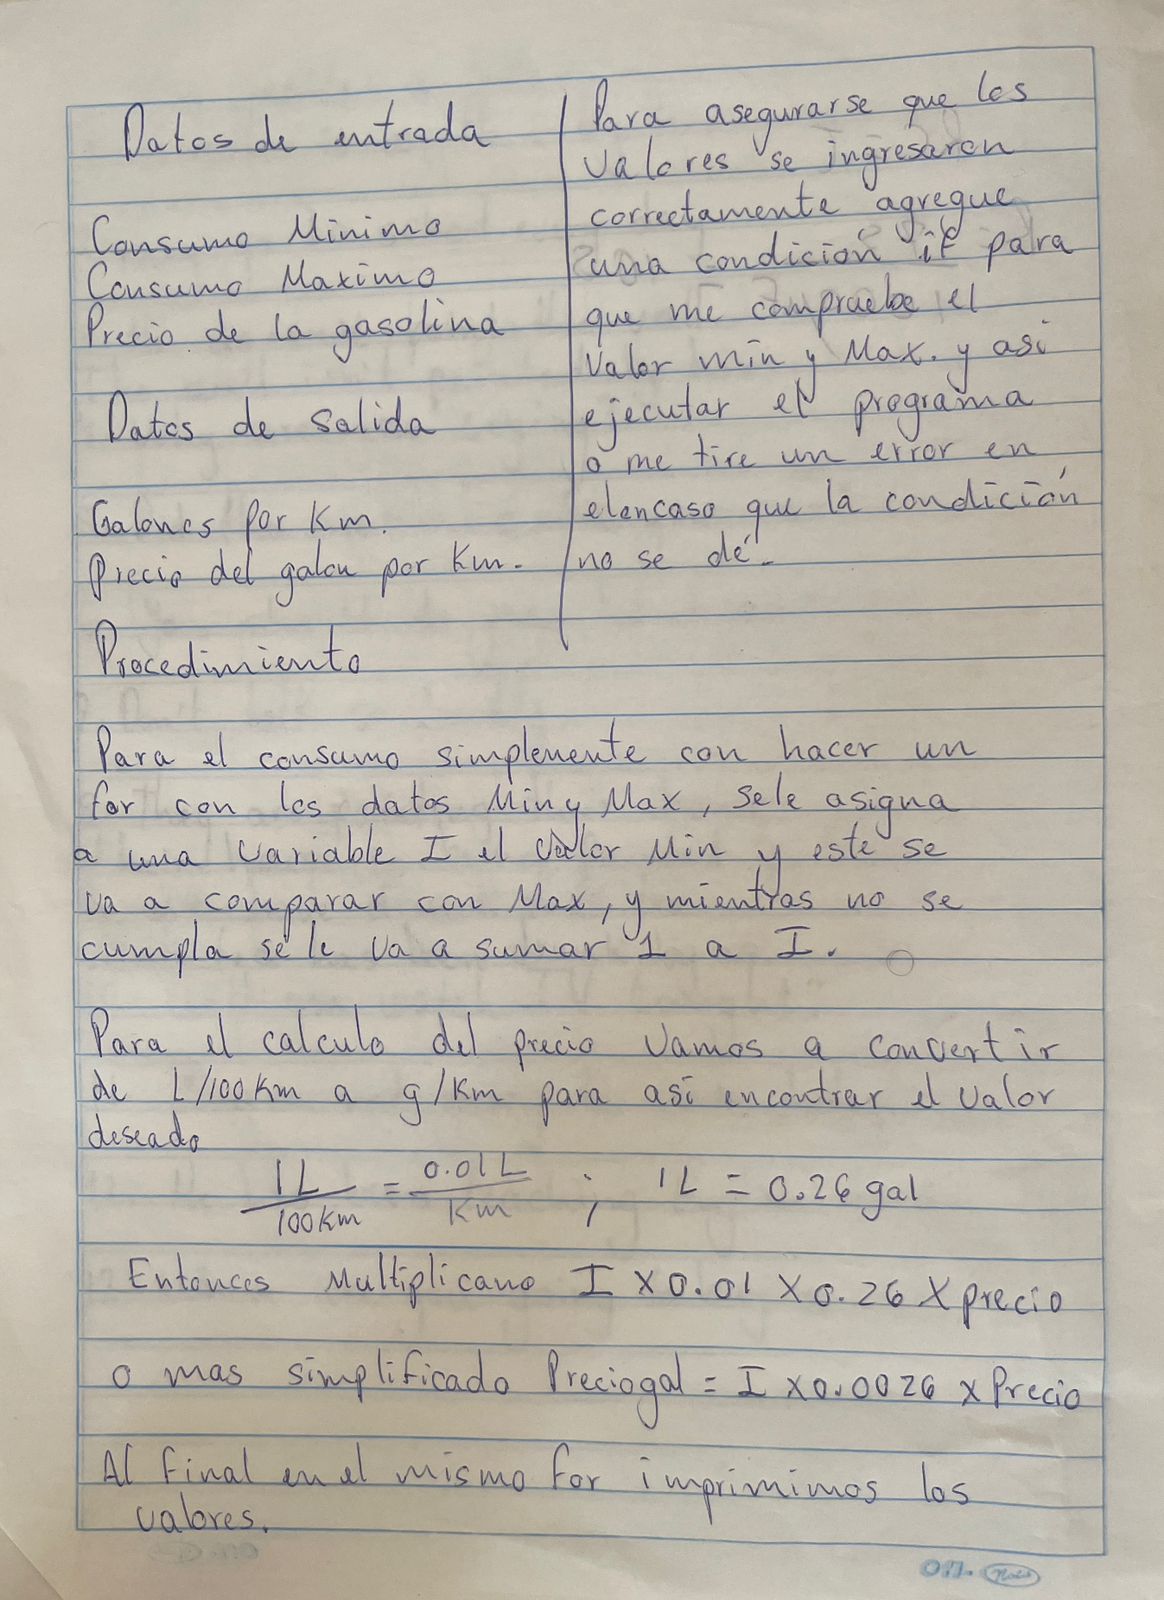 Datos de entrada
Consumo Minimo
Consumo Maximo
Precio de la gasolina
Datos de salida
Galones por Km.
Precio del galon por Km.
Para asegurarse que los
valores se ingresaron
correctamente agregue
una condición if para
que me compruebe el
valor min y Max. y asi
ejecutar el programa
o me tire un error en
elencaso que la condición
no se dé.
Procedimiento
Para el consumo simplemente con hacer un
for con los datos Min y Max, sele asigna
a una variable I el valor Min y este se
va a comparar con Max, y mientras no se
cumpla se le va a sumar 1 a I.
Para el calculo del precio vamos a convertir
de L/100Km a g/Km para asi encontrar el valor
deseado
1L/100Km = 0.01L/Km ; 1L = 0.26 gal
Entonces Multiplicano I X 0.01 X 0.26 X precio
o mas simplificado Preciogal = I x 0.0026 x Precio
Al final en el mismo for imprimimos los
valores.